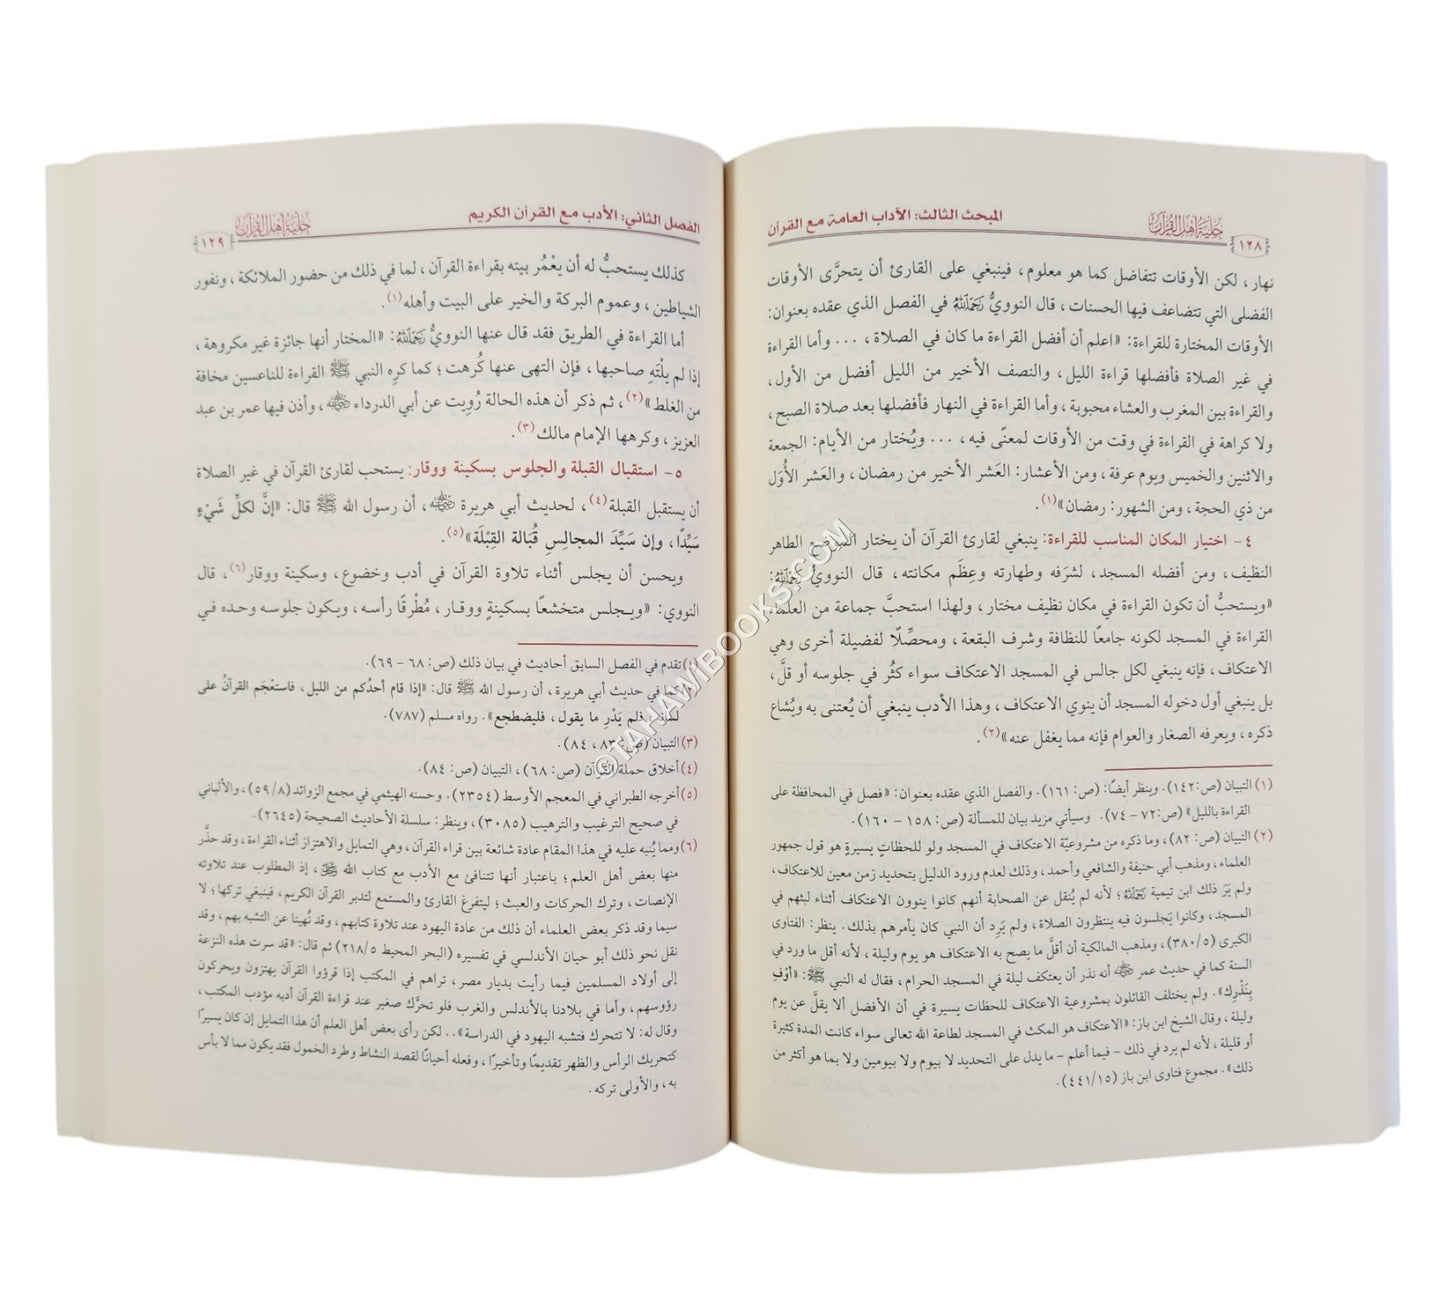 حلية أهل القرآن
١٢٨
المبحث الثالث: الآداب العامة مع القرآن
نهار، لكن الأوقات تتفاضل كما هو معلوم، فينبغي على القارئ أن يتحرَّى الأوقات
الفضلى التي تتضاعف فيها الحسنات، قال النوويُّ رَحِمَهُ اللهُ في الفصل الذي عقده بعنوان:
الأوقات المختارة للقراءة: «اعلم أن أفضل القراءة ما كان في الصلاة، ... وأما القراءة
في غير الصلاة فأفضلها قراءة الليل، والنصف الأخير من الليل أفضل من الأول،
والقراءة بين المغرب والعشاء محبوبة، وأما القراءة في النهار فأفضلها بعد صلاة الصبح،
ولا كراهة في القراءة في وقت من الأوقات لمعنًى فيه، ... ويُختار من الأيام: الجمعة
والاثنين والخميس ويوم عرفة، ومن الأعشار: العَشر الأخير من رمضان، والعَشر الأُوَل
من ذي الحجة، ومن الشهور: رمضان»(١).
٤- اختيار المكان المناسب للقراءة: ينبغي لقارئ القرآن أن يختار الموضع الطاهر
النظيف، ومن أفضله المسجد، لشرَفه وطهارته وعِظَم مكانته، قال النوويُّ رَحِمَهُ اللهُ:
«ويستحبُّ أن تكون القراءة في مكان نظيف مختار، ولهذا استحبَّ جماعة من العلماء
القراءة في المسجد لكونه جامعًا للنظافة وشرف البقعة، ومحصِّلًا لفضيلة أخرى وهي
الاعتكاف، فإنه ينبغي لكل جالس في المسجد الاعتكاف سواء كثُر في جلوسه أو قلَّ،
بل ينبغي أول دخوله المسجد أن ينوي الاعتكاف، وهذا الأدب ينبغي أن يُعتنى به ويُشاع
ذكره، ويعرفه الصغار والعوام فإنه مما يغفل عنه»(٢).
(١) التبيان (ص:١٤٢). وينظر أيضًا: (ص: ١٦١). والفصل الذي عقده بعنوان: «فصل في المحافظة على
القراءة بالليل» (ص:٧٢ - ٧٤). وسيأتي مزيد بيان للمسألة (ص: ١٥٨ - ١٦٠).
(٢) التبيان (ص: ٨٢)، وما ذكره من مشروعيّة الاعتكاف في المسجد ولو للحظاتٍ يسيرةٍ هو قول جمهور
العلماء، ومذهب أبي حنيفة والشافعي وأحمد، وذلك لعدم ورود الدليل بتحديد زمن معين للاعتكاف،
ولم يَرَ ذلك ابن تيمية رَحِمَهُ اللهُ؛ لأنه لم يُنقل عن الصحابة أنهم كانوا ينوون الاعتكاف أثناء لبثهم في
المسجد، وكانوا يَجلسون فيه ينتظرون الصلاة، ولم يَرِد أن النبي كان يأمرهم بذلك. ينظر: الفتاوى
الكبرى (٣٨٠/٥)، ومذهب المالكية أن أقلَّ ما يصح به الاعتكاف هو يوم وليلة، لأنه أقل ما ورد في
السنة كما في حديث عمر رضي الله عنه أنه نذر أن يعتكف ليلة في المسجد الحرام، فقال له النبي ﷺ: «أوْفِ
بِنَذْرِك». ولم يختلف القائلون بمشروعية الاعتكاف للحظات يسيرة في أن الأفضل ألا يقلَّ عن يوم
وليلة، وقال الشيخ ابن باز: «الاعتكاف هو المكث في المسجد لطاعة الله تعالى سواء كانت المدة كثيرة
أو قليلة، لأنه لم يرد في ذلك - فيما أعلم - ما يدل على التحديد لا بيوم ولا بيومين ولا بما هو أكثر من
ذلك». مجموع فتاوى ابن باز (٤٤١/١٥).
الفصل الثاني: الأدب مع القرآن الكريم
حلية أهل القرآن
١٢٩
كذلك يستحبُّ له أن يعْمُر بيته بقراءة القرآن، لما في ذلك من حضور الملائكة، ونفور
الشياطين، وعموم البركة والخير على البيت وأهله(١).
أما القراءة في الطريق فقد قال عنها النوويُّ رَحِمَهُ اللهُ: «المختار أنها جائزة غير مكروهة،
إذا لم يلْتَهِ صاحبها، فإن التهى عنها كُرهت؛ كما كرِه النبي ﷺ القراءة للناعسين مخافة
من الغلط»(٢)، ثم ذكر أن هذه الحالة رُويت عن أبي الدرداء رضي الله عنه، وأذن فيها عمر بن عبد
العزيز، وكرهها الإمام مالك(٣).
٥- استقبال القبلة والجلوس بسكينة ووقار: يستحب لقارئ القرآن في غير الصلاة
أن يستقبل القبلة(٤)، لحديث أبي هريرة رضي الله عنه، أن رسول الله ﷺ قال: «إنَّ لكلِّ شَيْءٍ
سَيِّدًا، وإن سَيِّدَ المجالِسِ قُبَالة القِبْلَة»(٥).
ويحسن أن يجلس أثناء تلاوة القرآن في أدب وخضوع، وسكينة ووقار(٦)، قال
النووي: «ويجلس متخشعًا بسكينةٍ ووقار، مُطْرقًا رأسه، ويكون جلوسه وحده في
(١) تقدم في الفصل السابق أحاديث في بيان ذلك (ص: ٦٨ - ٦٩).
كما في حديث أبي هريرة، أن رسول الله ﷺ قال: «إذا قام أحدُكم من الليل، فاستعْجَم القرآنُ على
لسانه، فلم يَدْرِ ما يقول، فليضطجع». رواه مسلم (٧٨٧).
(٣) التبيان (ص: ٨٣، ٨٤).
(٤) أخلاق حملة القرآن (ص: ٦٨)، التبيان (ص: ٨٤).
(٥) أخرجه الطبراني في المعجم الأوسط (٢٣٥٤). وحسنه الهيثمي في مجمع الزوائد (٥٩/٨)، والألباني
في صحيح الترغيب والترهيب (٣٠٨٥)، وينظر: سلسلة الأحاديث الصحيحة (٢٦٤٥).
(٦) ومما يُنبه عليه في هذا المقام عادة شائعة بين قراء القرآن، وهي التمايل والاهتزاز أثناء القراءة، وقد حذَّر
منها بعض أهل العلم؛ باعتبار أنها تتنافئ مع الأدب مع كتاب الله، إذ المطلوب عند تلاوته
الإنصات، وترك الحركات والعبث؛ ليتفرغ القارئ والمستمع لتدبر القرآن الكريم، فينبغي تركها؛ لا
سيما وقد ذكر بعض العلماء أن ذلك من عادة اليهود عند تلاوة كتابهم، وقد نُهينا عن التشبه بهم، وقد
نقل نحو ذلك أبو حيان الأندلسي في تفسيره (البحر المحيط ٢١٨/٥) ثم قال: «قد سرت هذه النزعة
إلى أولاد المسلمين فيما رأيت بديار مصر، تراهم في المكتب إذا قرؤوا القرآن يهتزون ويحركون
رؤوسهم، وأما في بلادنا بالأندلس والغرب فلو تحرَّك صغير عند قراءة القرآن أدبه مؤدب المكتب،
وقال له: لا تتحرك فتشبه اليهود في الدراسة».. لكن رأى بعض أهل العلم أن هذا التمايل إن كان يسيرًا
كتحريك الرأس والظهر تقديمًا وتأخيرًا، وفعله أحيانًا لقصد النشاط وطرد الخمول فقد يكون مما لا بأس
به، والأولى تركه.
©TAHAWIBOOKS.COM